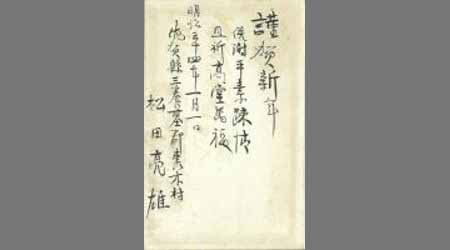 謹賀新年
併謝平素疎情
且祈高堂萬福
明治三十四年一月一日
佐賀縣三養基郡麓木村
松田亮雄